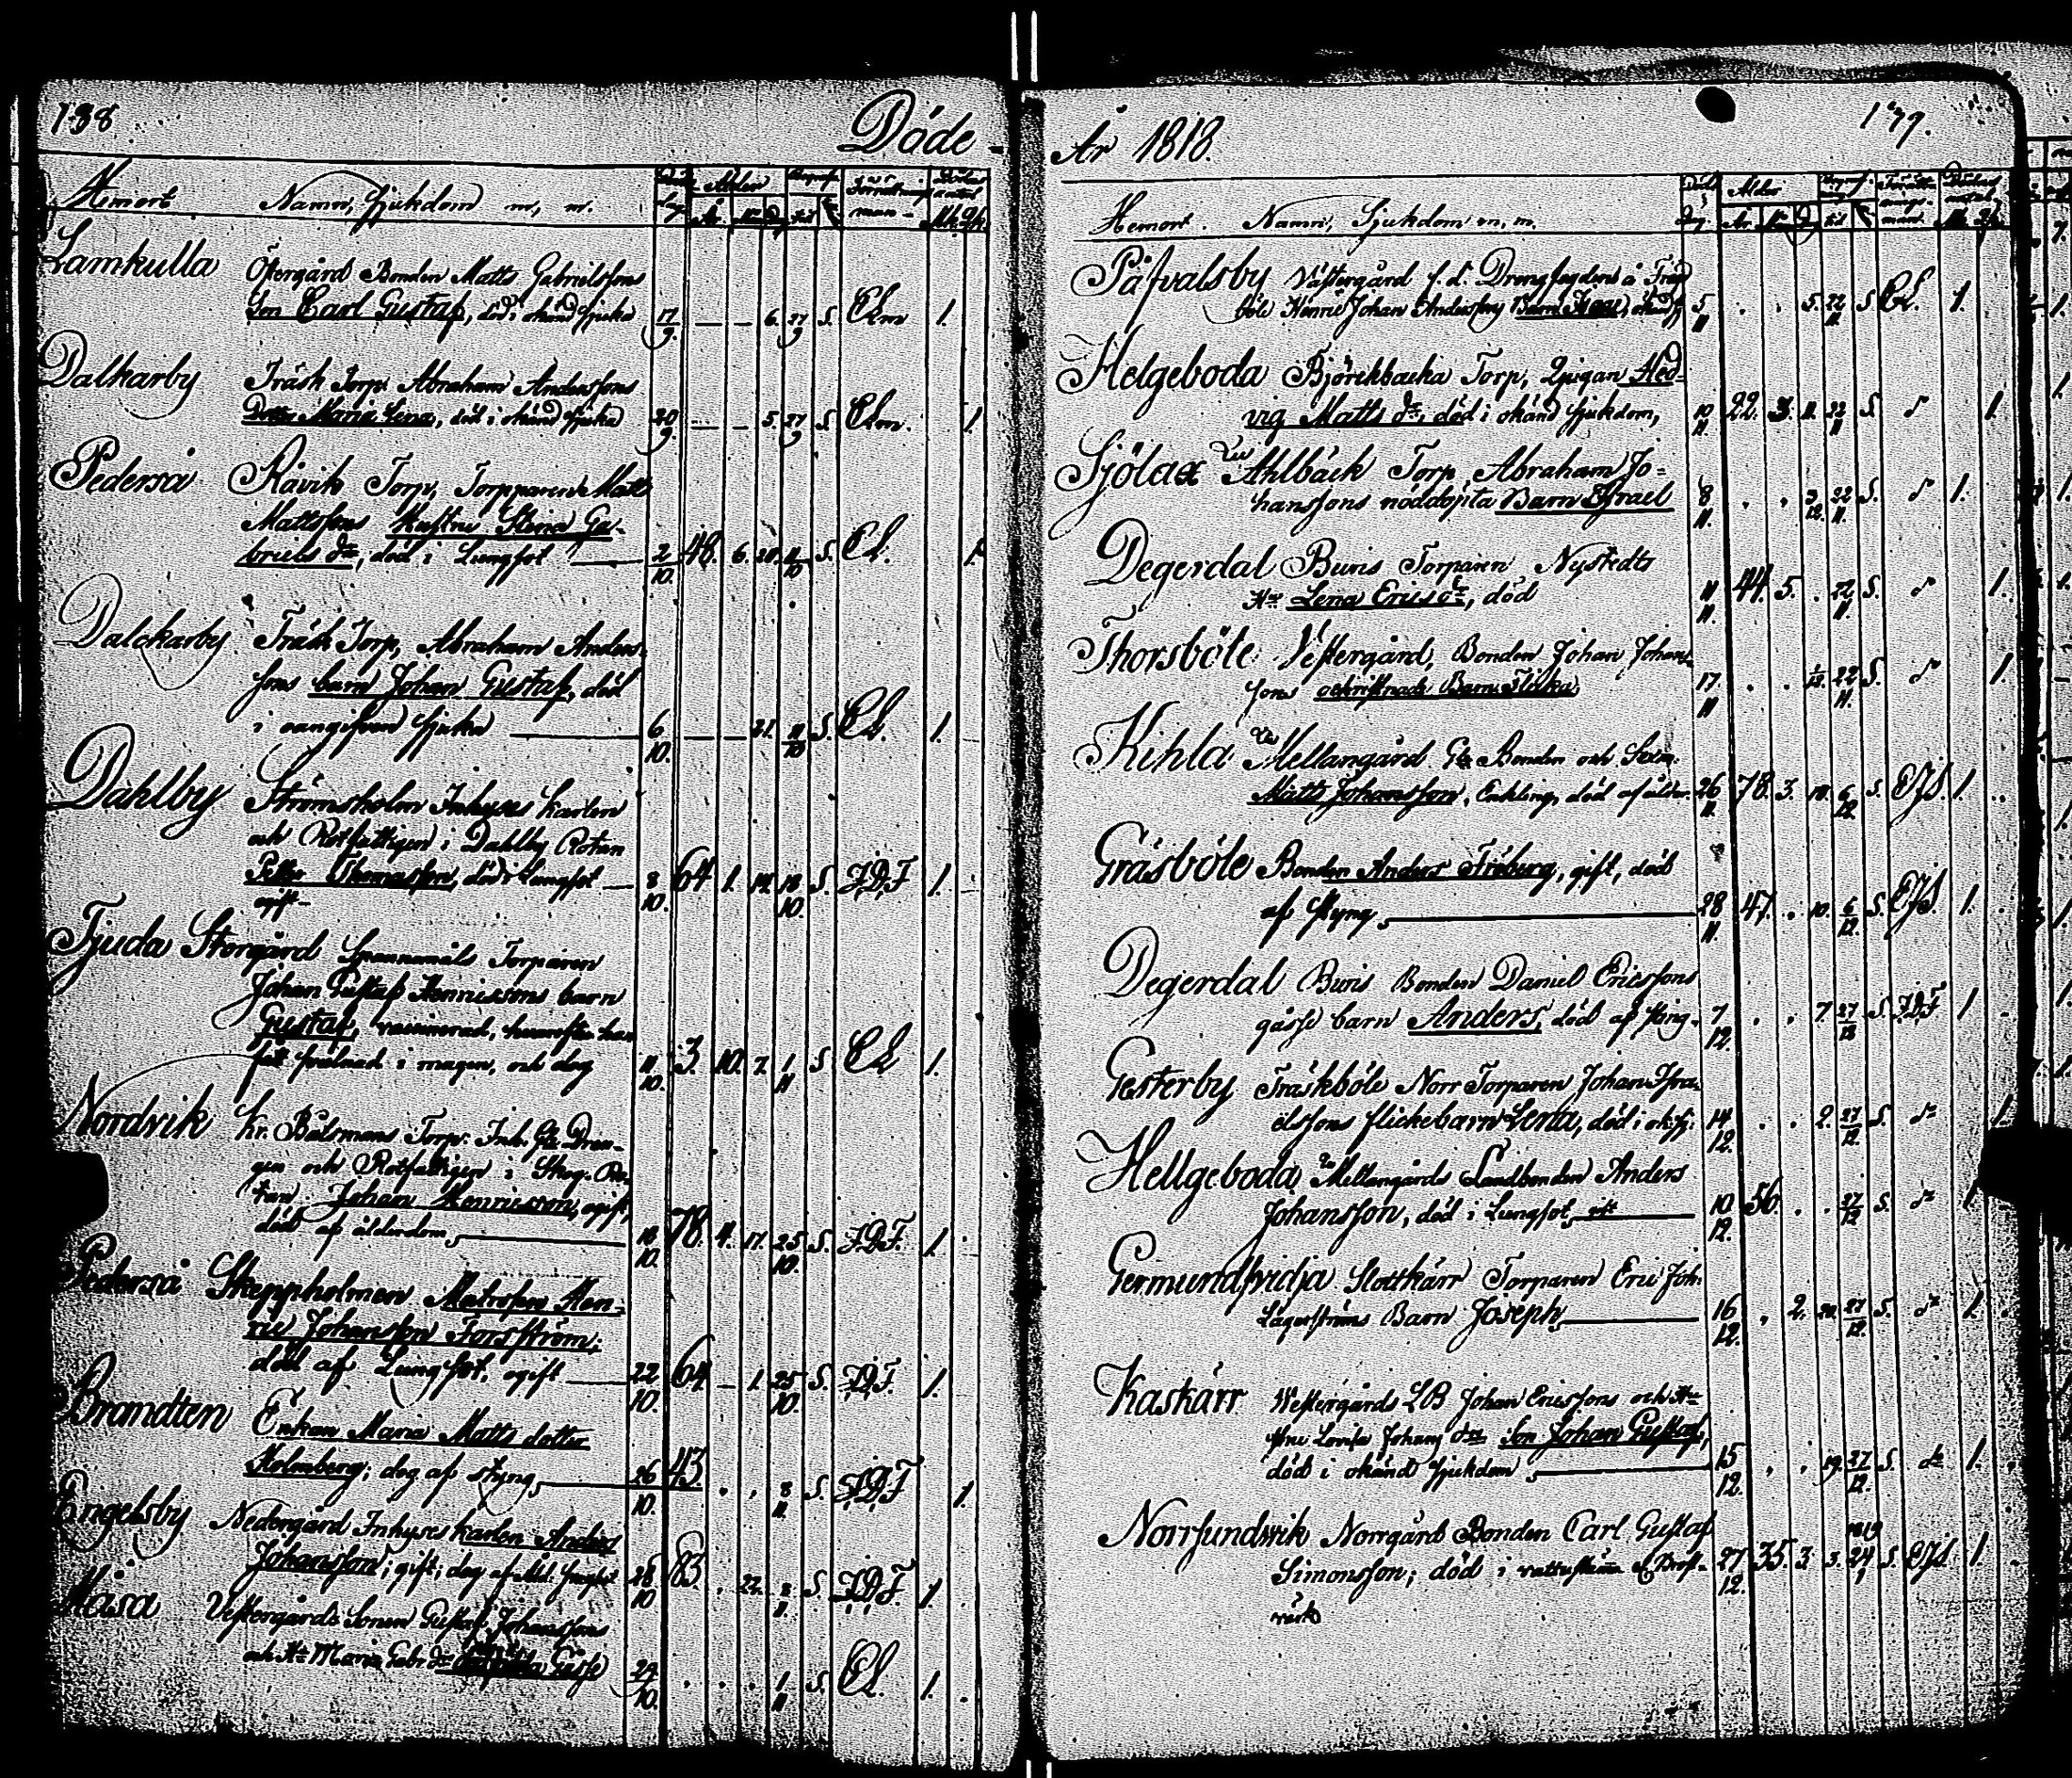 138
Döde
Hemort Namn, Sjukdom m, m. dag Ålder År. Förrättnings man
Lamkulla Östergård Bonden Matts Gabrielssons
Son Carl Gustaf, död i okänd sjuka 17/9. — — 6. 27/9 S. CLm 1.
Dalkarby Träsk Torp Abraham Anderssons
Dotter Maria Lena, död i okänd sjuka 20/9. — — 5. 27/9 S. CLm. 1.
Pederså Råvik Torp, Torpparen Matts
Mattssons Hustru Stina Ga-
briels dr, död i Lungsot 2/10. 48. 6. 28. 11/10 S. CL. 1.
Dalckarby Träsk Torp, Abraham Anders-
sons barn Johan Gustaf, död
i oangifven sjuka 6/10. — — 21. 11/10 S. CL. 1.
Dahlby Strömsholm Inhyses karlen
och Rotfattigen i Dahlby Rotan
Petter Thomasson, död i Lungsot — 8/10. 64. 1. 14. 18/10. S. J.D.F 1.
ogift —
Tjuda Storgård Spannemåls Torparen
Johan Gustaf Henricssons barn
Gustaf, vaccinerad,
i magen, och dog 11/10. 3. 10. 7. 1/11 S CL 1.
Nordvik Kr. Båtsmans Torp. Inh. Gle Dren-
gen och Rotfattigen i Skog. Ro-
tan Johan Henricsson, ogift,
död af ålderdom, 18/10. 78. 4. 17. 25/10. S. J.D.F. 1.
Pederså Skeppholmen Matrosen Hen-
ric Johansson Forsström;
död af Lungsot, ogift 22/10. 64 — 1. 25/10. S. J.D.F. 1.
Brandten Enkan Maria Matts dotter
Holmberg; dog af styng, 26/10. 43. . . 8/11. S. J.D.F 1.
Engelsby Nedergård Inhyses karlen Anders
Johansson; gift; dog af 28/10 83. . 22. 8/11. S. J.D.F 1.
Måsa Vestergårds Sonen Gustaf Johanssons
och Hu Maria Gabr. dr Gåsse 29/10. . . . 1/11 S. CL. 1.
År 1818.
139.
Hemort. Namn, Sjukdom m, m. Död dag Ålder Ar
Påfvalsby Västergård f.d. Drengfogden å Träsk
böle Henric Johan Anderssons Barn 5/11 . . 5. 22/11. S CL. 1.
Helgeboda Björckbacka Torp, Pigan Hed-
vig Matts dr, död i okänd sjukdom, 10/11. 22. 3. 11. 22/11 S. 1.
Sjölax Ahlbäck Torp, Abraham Jo-
hanssons nöddöpta Barn Israel 8/11. . . 22/11. S. 1.
Degerdal Buris Torparen Nystedts
Hu Lena Erics dr, död 11/11. 44. 5. . 22/11. S. 1.
Thorsböle Vestergård, Bonden Johan Johans-
sons ochristnade Barn Flicka 17/11 . . 22/11. S. 1.
Kihla Mellangård Gle Bonden och Sexm.
Matts Johansson, Enkling, död af ålder. 26/11. 78. 3. 18. 6/12 S. EJS. 1.
Gräsböle Bonden Anders Fröberg, gift, död
af styng, 28/11. 47. . 10. 6/12. S. EJS. 1.
Degerdal Buris Bonden Daniel Ericssons
gåsse barn Anders, död af sting. 7/12. . . 7. 27/12 S. J.D.F 1.
Gesterby Träskböle Norr Torparen Johan Isra-
elssons flickebarn Lena, död i ok: sj: 14/12. . . 2. 27/12. S. dr 1.
Hellgeboda Mellangårds Landbonden Anders
Johansson, död i Lungsot, gift 10/12. 56. . . 27/12 S. dr 1.
Germundsvidja Slottkärr Torparen Eric Joh:
Lagerströms Barn Joseph, 16/12. . 2. 20. 27/12. S. dr 1.
Kaskärr Westergårds LB Johan Ericssons och Hu-
stru Lovisa Johans dr Son Johan Gustaf,
död i okänd sjukdom, 15/12. . . 19. 27/12. S. dr 1.
Norrsundsvik Norrgård Bonden Carl Gustaf
Simonsson; död i & Bröst- 27/12. 35. 3. 3. 1819 24/1 S. EJS. 1.
värk